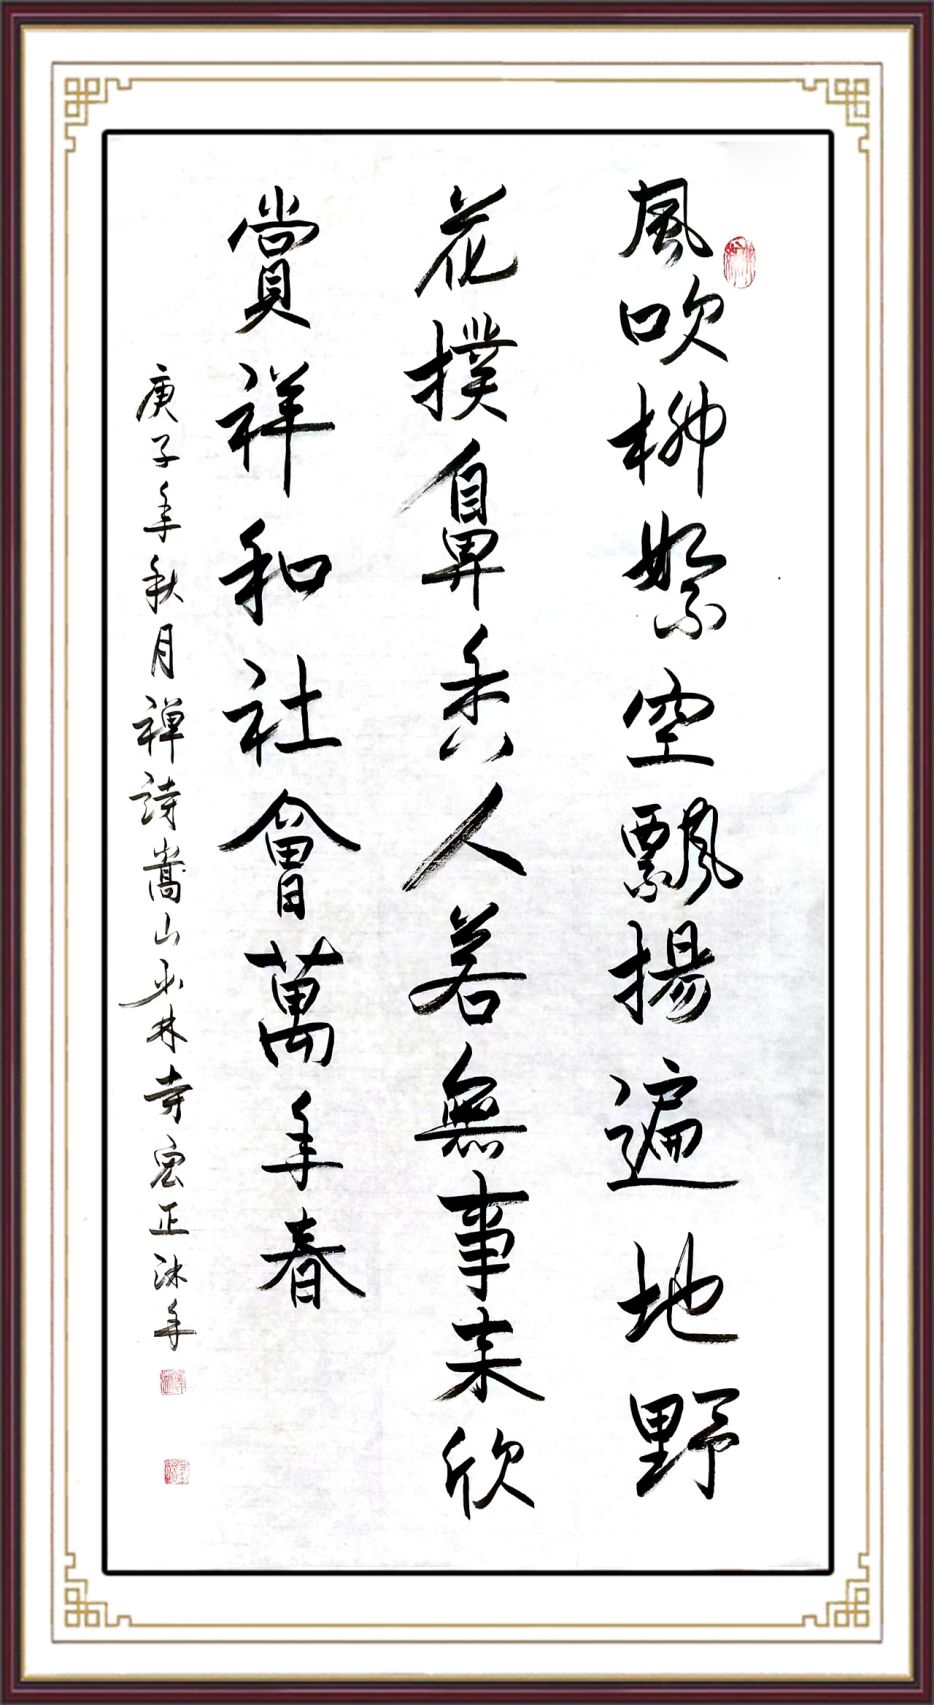 風吹柳絮空飄揚遍地野
花撲鼻香人若無事来欣
賞祥和社會萬年春
庚子年秋月禅詩嵩山少林寺宏正沐手